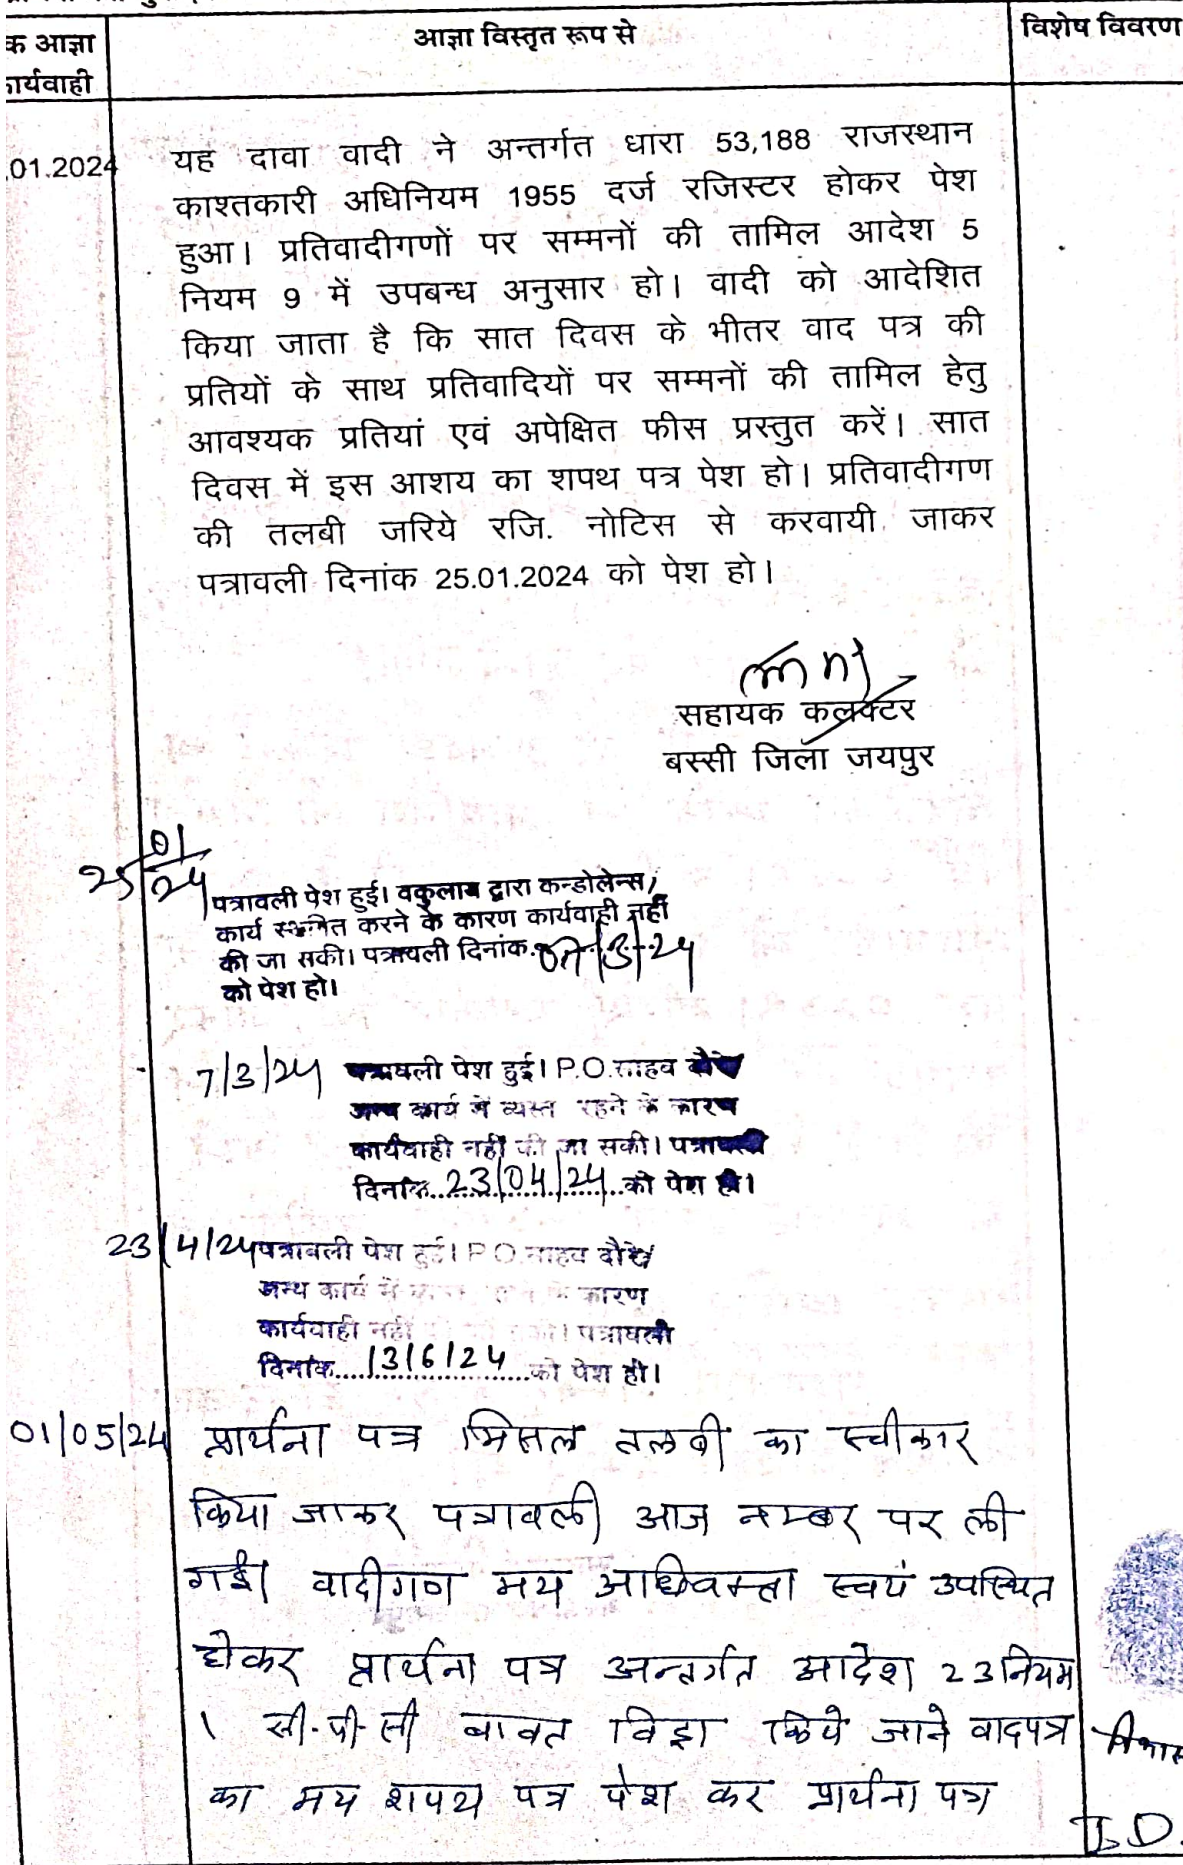 क आज्ञा
ार्यवाही
आज्ञा विस्तृत रूप से
विशेष विवरण
.01.2024
यह दावा वादी ने अन्तर्गत धारा 53,188 राजस्थान
काश्तकारी अधिनियम 1955 दर्ज रजिस्टर होकर पेश
हुआ। प्रतिवादीगणों पर सम्मनों की तामिल आदेश 5
नियम 9 में उपबन्ध अनुसार हो। वादी को आदेशित
किया जाता है कि सात दिवस के भीतर वाद पत्र की
प्रतियों के साथ प्रतिवादियों पर सम्मनों की तामिल हेतु
आवश्यक प्रतियां एवं अपेक्षित फीस प्रस्तुत करें। सात
दिवस में इस आशय का शपथ पत्र पेश हो। प्रतिवादीगण
की तलबी जरिये रजि. नोटिस से करवायी जाकर
पत्रावली दिनांक 25.01.2024 को पेश हो।
सहायक कलक्टर
बस्सी जिला जयपुर
25/01/24
पत्रावली पेश हुई। वकुलाय द्वारा कन्डोलेन्स/
कार्य स्थगित करने के कारण कार्यवाही नहीं
की जा सकी। पत्रावली दिनांक 07/3/24
को पेश हो।
7/3/24 पत्रावली पेश हुई। P.O. साहब दौरे
अन्य कार्य में व्यस्त रहने के कारण
कार्यवाही नहीं की जा सकी। पत्रावली
दिनांक...23/04/24...को पेश हो।
23/4/24 पत्रावली पेश हुई। P.O. साहब दौरे/
अन्य कार्य में के कारण
कार्यवाही नहीं पत्रावली
दिनांक....13/6/24....को पेश हो।
01/05/24 प्रार्थना पत्र मिसल तलबी का स्वीकार
किया जाकर पत्रावली आज नम्बर पर ली
गई। वादीगण मय अधिवक्ता स्वयं उपस्थित
होकर प्रार्थना पत्र अन्तर्गत आदेश 23 नियम
1 सी.पी.सी बाबत विड्रा किये जाने वादपत्र
का मय शपथ पत्र पेश कर प्रार्थना पत्र
विकास
I.D.